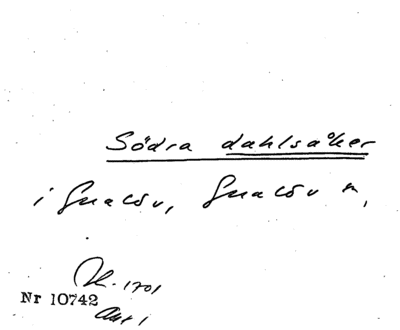 Södra dahlsåker
i Gualöv, Gualöv m,
K. 1701
Nr 10742
Akt 1